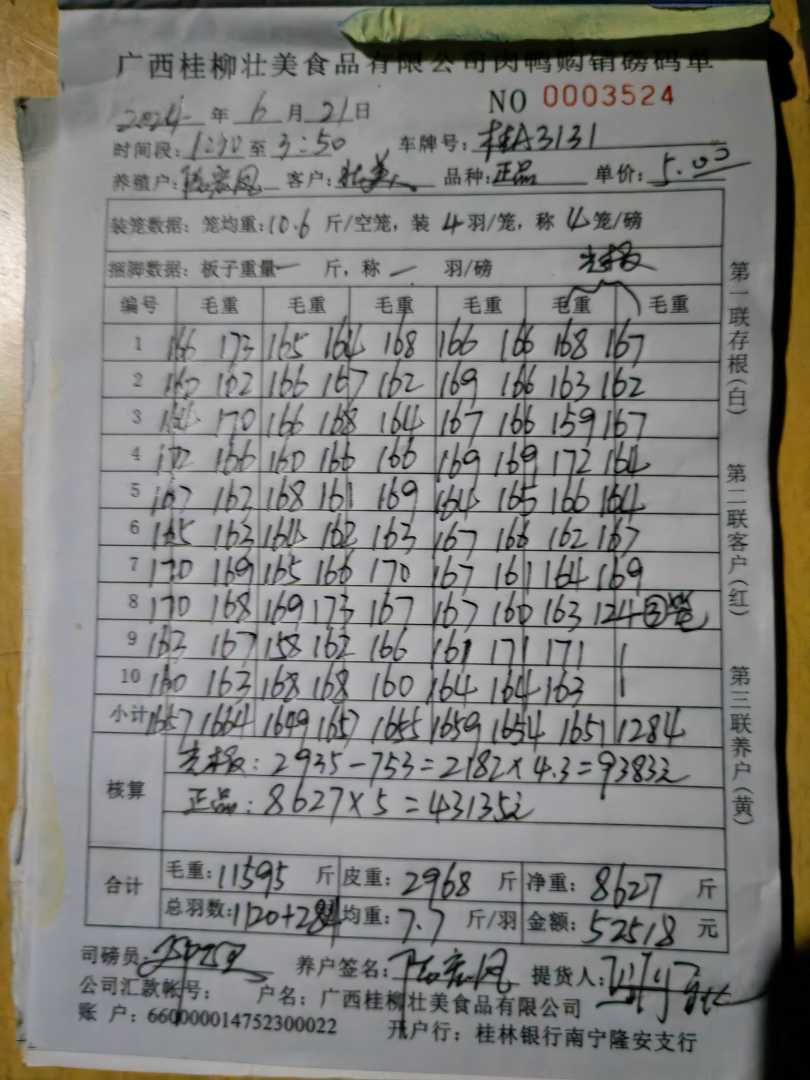 广西桂柳壮美食品有限公司肉鸭购销磅码单
2024 年 6 月 21 日 NO 0003524
时间段: 1:30 至 3:50 车牌号: 桂A3131
养殖户: 客户: 壮美 品种: 正品 单价: 5.00
装笼数据: 笼均重: 10.6 斤/空笼, 装 4 羽/笼, 称 4 笼/磅
捆脚数据: 板子重量 一 斤, 称 一 羽/磅
编号 毛重 毛重 毛重 毛重 毛重 毛重
1 166 173 165 164 168 166 166 168 167
2 162 166 167 162 169 166 163 162
3 164 170 166 168 164 167 166 159 167
4 172 166 160 166 166 169 169 172 164
5 167 163 168 161 169 164 165 166 164
6 165 163 164 162 163 167 166 162 167
7 170 169 165 166 170 167 161 164 169
8 170 168 169 173 167 167 160 163 124 ③笼
9 163 167 158 162 166 161 171 171
10 160 163 168 168 160 164 164 163
小计 1657 1664 1649 1657 1655 1659 1654 1651 1284
核算
: 2935-753=2182×4.3=9383元
正品: 8627×5=43135元
合计
毛重: 11595 斤 皮重: 2968 斤 净重: 8627 斤
总羽数: 1120+284 均重: 7.7 斤/羽 金额: 52518 元
司磅员: 养户签名: 提货人:
公司汇款帐号: 户名: 广西桂柳壮美食品有限公司
账 户: 660000014752300022 开户行: 桂林银行南宁隆安支行
第一联存根(白)
第二联客户(红)
第三联养户(黄)